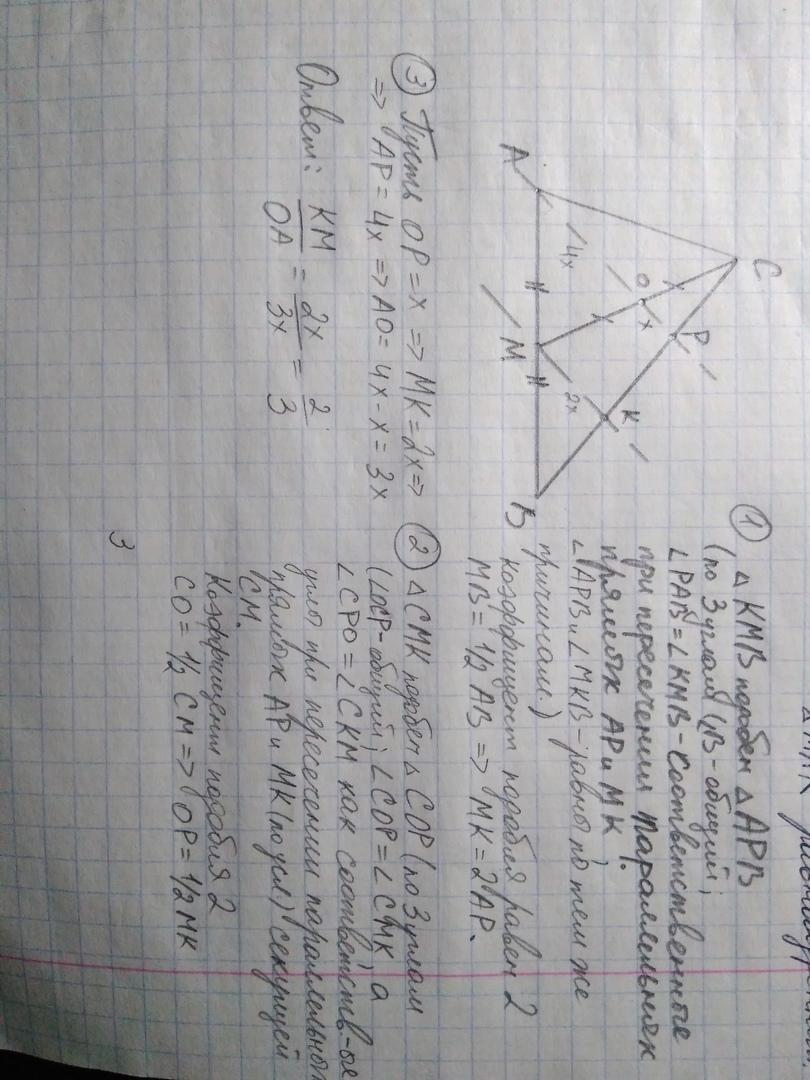 C
A
O
P
x
4x
M
2x
K
B
① △KMB подобен △APB
(по 3 углам (∠B-общий;
∠PAB = ∠KMB - соответственные
при пересечении параллельных
прямых AP и MK.
∠APB и ∠MKB - равны по тем же
причинам.)
коэффициент подобия равен 2
MB = 1/2 AB => MK = 2AP.
② △CMK подобен △COP (по 3 углам
(∠OCP-общий; ∠COP = ∠CMK, а
∠CPO = ∠CKM как соответств-ые
углы при пересечении параллельных
прямых AP и MK (по усл) секущей
CM.
Коэффициент подобия 2
CO = 1/2 CM => OP = 1/2 MK
③ Пусть OP = x => MK = 2x =>
=> AP = 4x => AO = 4x - x = 3x
Ответ: KM/OA = 2x/3x = 2/3
3